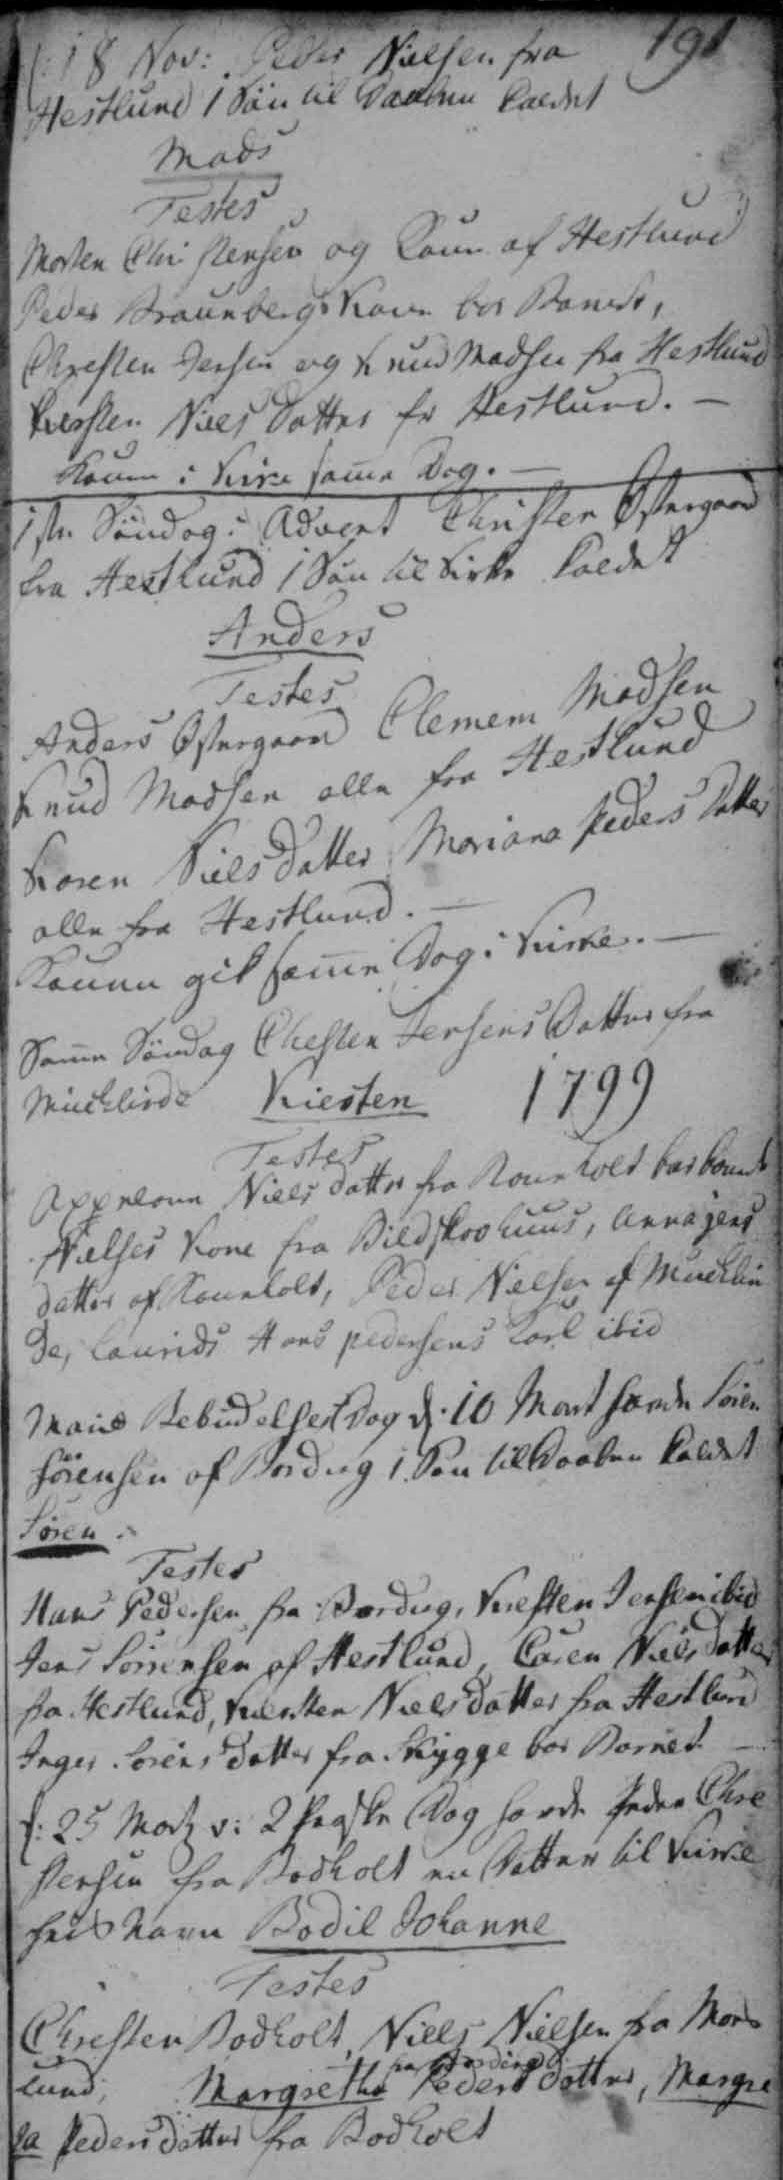 191
d: 18 Nov: Peder Nielsen fra
Hestlund 1 Sön til Daaben kaldet
Mads
Testes
Morten Christensen og Kone af Hestlund
Peder Braunbergs Kone bar Barnet,
Chresten Jensen og Knud Madsen fra Hestlund
Kiersten Niels Datter fr Hestlund. —
Konen i Kirke samme Dag. —
1ste Söndag i Advent Christen Östergaard
fra Hestlund 1 Sön til Kirke kaldet
Anders
Testes
Anders Östergaard Clemem Madsen
Knud Madsen alle fra Hestlund
Karen Niels datter Mariane Peders Datter
alle fra Hestlund. —
Konen gik samme Dag i Kirke. —
Samme Söndag Chresten Jensens Datter fra
Kiesten 1799
Testes
Appelone Niels datter fra bar barnet
Nielses Kone fra huus, Anna Jens
datter af Peder Nielsen af Mucklin
de, Laurids Hans pedersens Karl ibid
Mariæ Bebudelses Dag d. 10 Mart havde Sören
Sörensen af Bording 1 Sön til Daaben kaldet
Sören.
Testes
Hans Pedersen fra Bording, Kresten Jensen ibid
Jens Sörensen af Hestlund, Caren Niels datter
fra Hestlund, Kiersten Niels datter fra Hestlund
Inger Sörens datter fra Skygge bar Barnet —
d: 25 Martz v: 2 Paaske Dag havde Peder Chre
stensen fra Bodholt en Datter til Kirke
hvis Navn Bodil Johanne
Testes
Chresten Bodholt, Niels Nielsen fra Mors
lund, Margrethe fra Bording Peders datter, Margre
ta Peders datter fra Bodholt